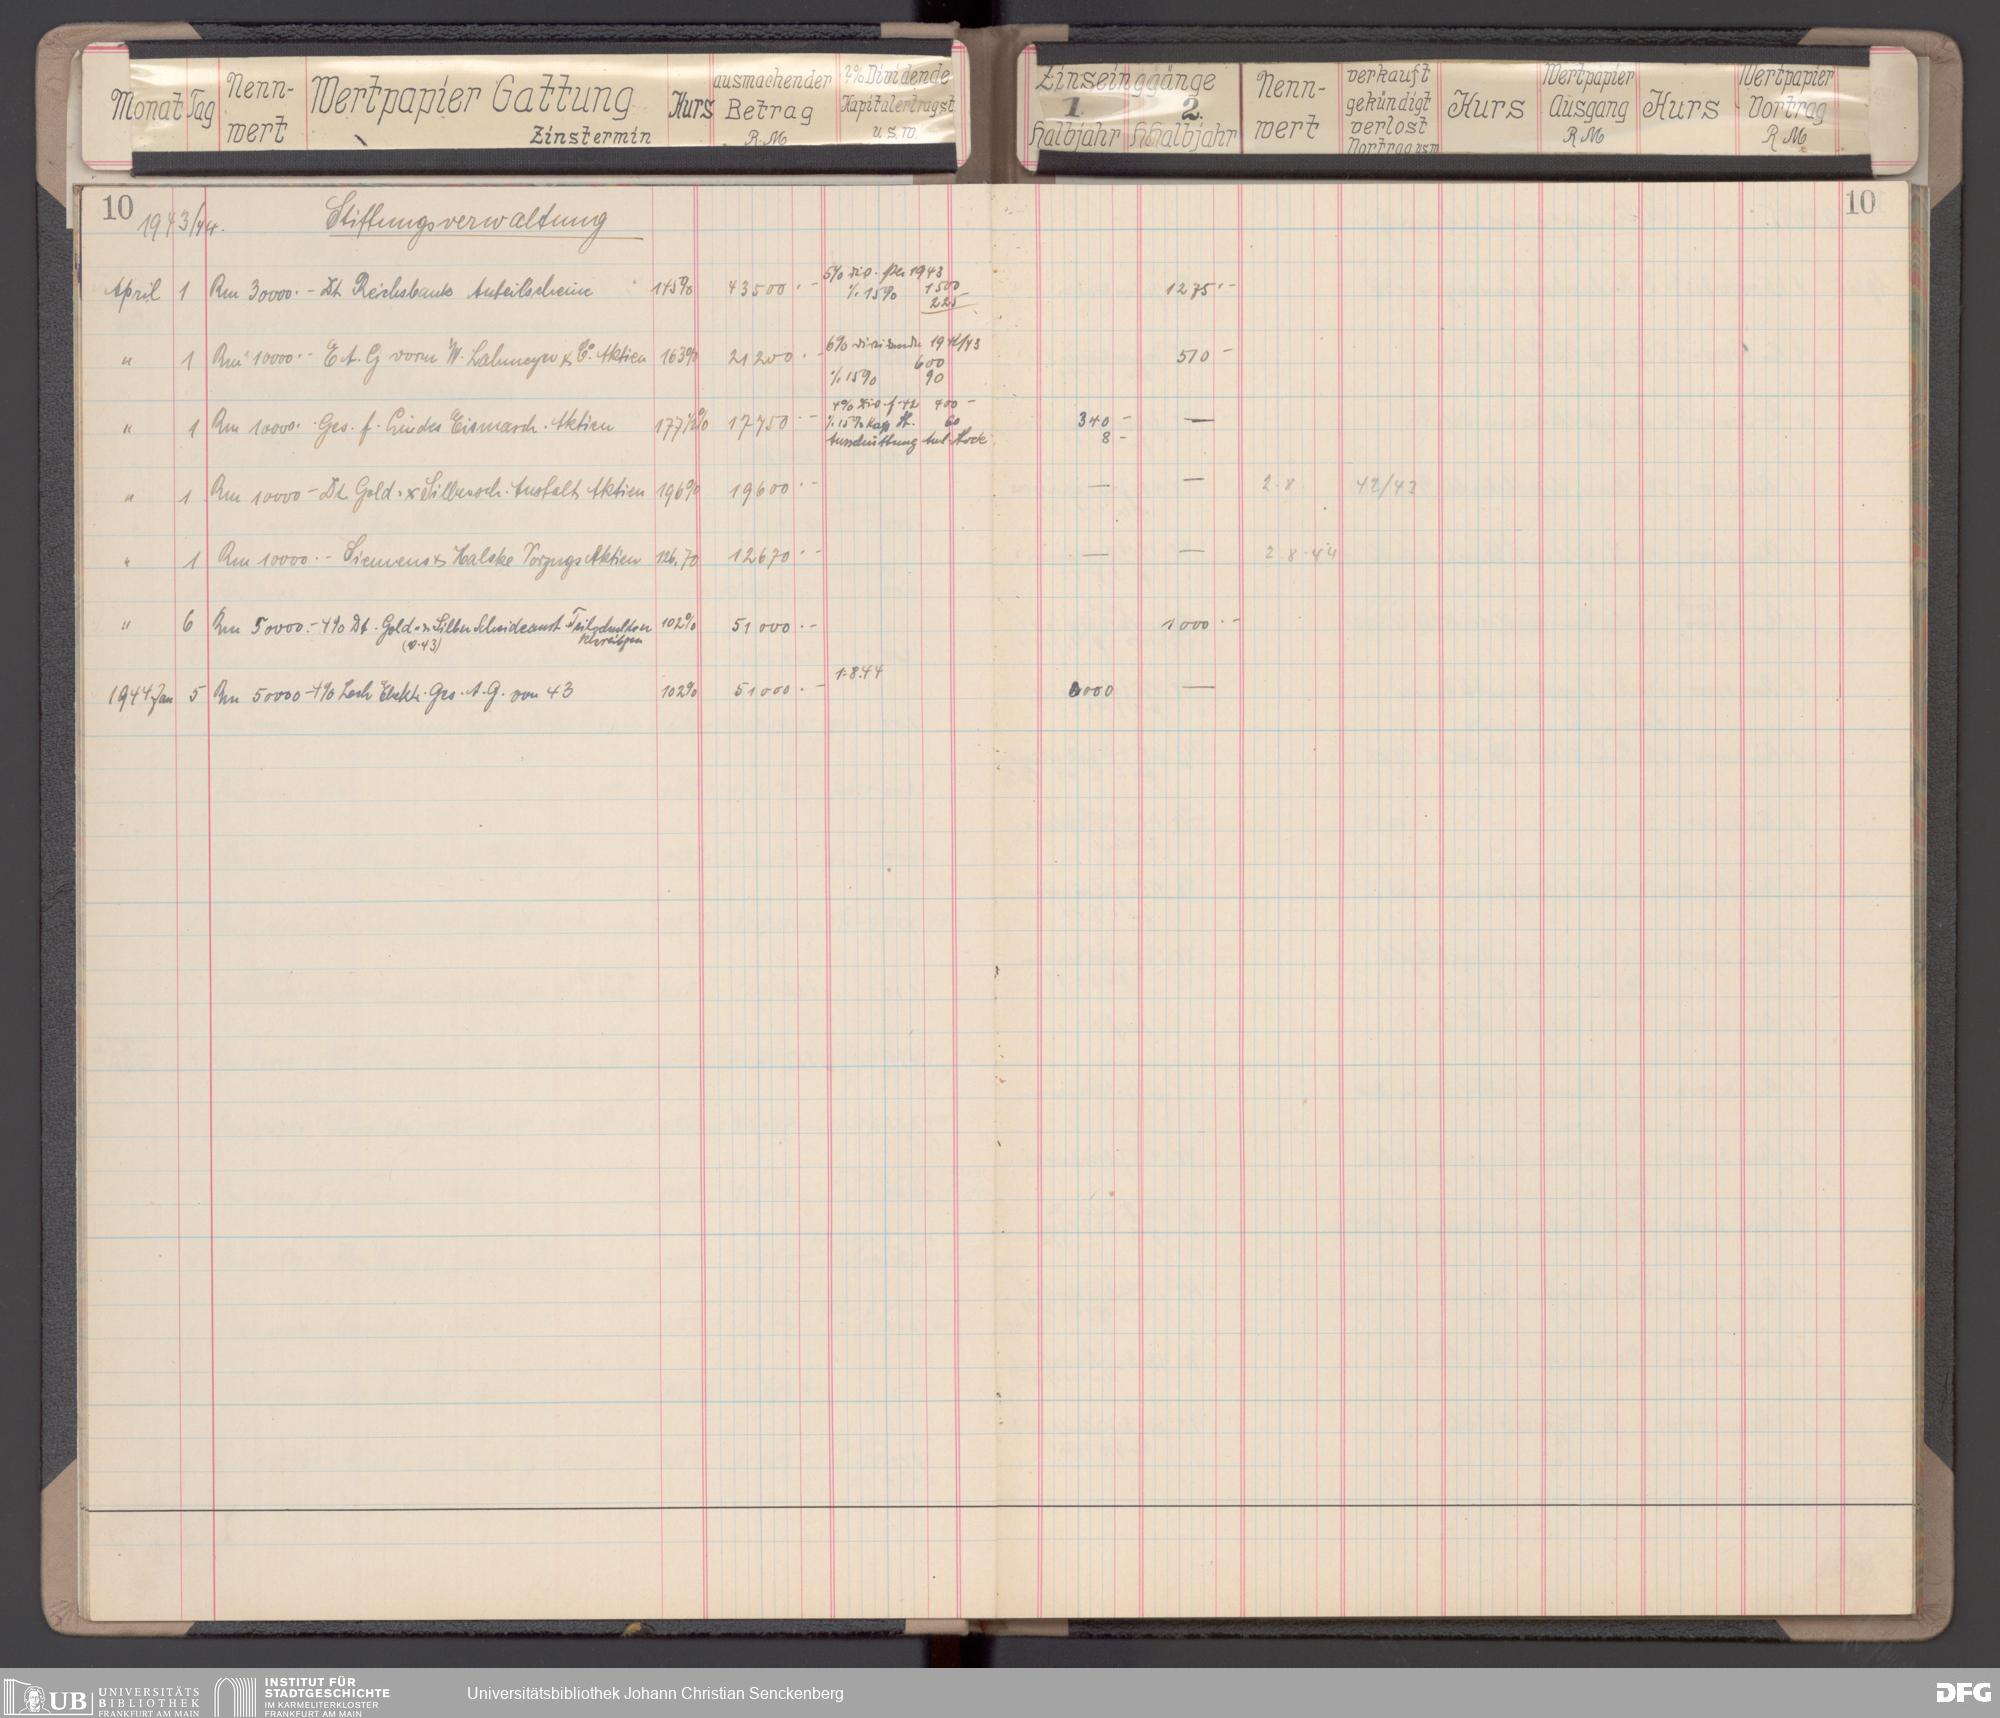 Monat Tag Nenn-wert Wertpapier Gattung Zinstermin Kurs ausmachender Betrag RM ?% Dividende Kapitalertragst. u.s.w. Zinseinggänge 1. Halbjahr 2. Halbjahr Nenn-wert verkauft gekündigt verlost Vortrag usw Kurs Wertpapier Ausgang RM Kurs Wertpapier Vortrag RM
10 1943/44. Stiftungsverwaltung 10
5% Div. per 1943
April 1 Rm 30000.- Dt Reichsbank Anteilscheine 145% 43500.- ./. 15% 1500 1275.-
225
6% Dividende 1942/43
" 1 Rm 10000.- E.A.G vorm W. Lahmeyer & Co. Aktien 163% 21200.- 600 510-
./. 15% 90
4% Div. f. 42 400-
" 1 Rm 10000.- Ges. f. Lindes Eismasch. Aktien 177 1/2% 17750.- ./. 15% Kap St. 60 340- —
Ausschüttung 8-
" 1 Rm 10000- Dt Gold- & Silbersch. Anstalt Aktien 196% 19600.- — — 2.8 42/43
" 1 Rm 10000.- Siemens & Halske Vorzugs Aktien 126,70 12670.- — — 2 8.44
" 6 Rm 50000.- 4% Dt. Gold- & Silber Scheideanst. Teilschuldver 102% 51000.- 1000.-
(v. 43) schreibgen
1.8.44
1944 Jan 5 Rm 50000- 4% Lech Elektr. Ges. A.G. von 43 102% 51000.- 000 —
UB UNIVERSITÄTS
BIBLIOTHEK
FRANKFURT AM MAIN
INSTITUT FÜR
STADTGESCHICHTE
IM KARMELITERKLOSTER
FRANKFURT AM MAIN
Universitätsbibliothek Johann Christian Senckenberg
DFG